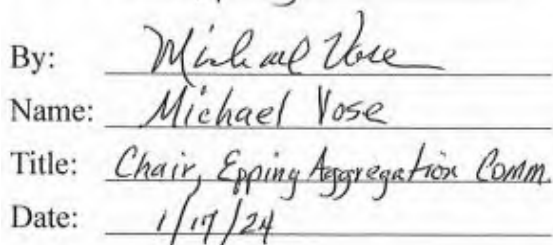 By: Michael Vose
Name: Michael Vose
Title: Chair, Epping Aggregation Comm.
Date: 1/17/24